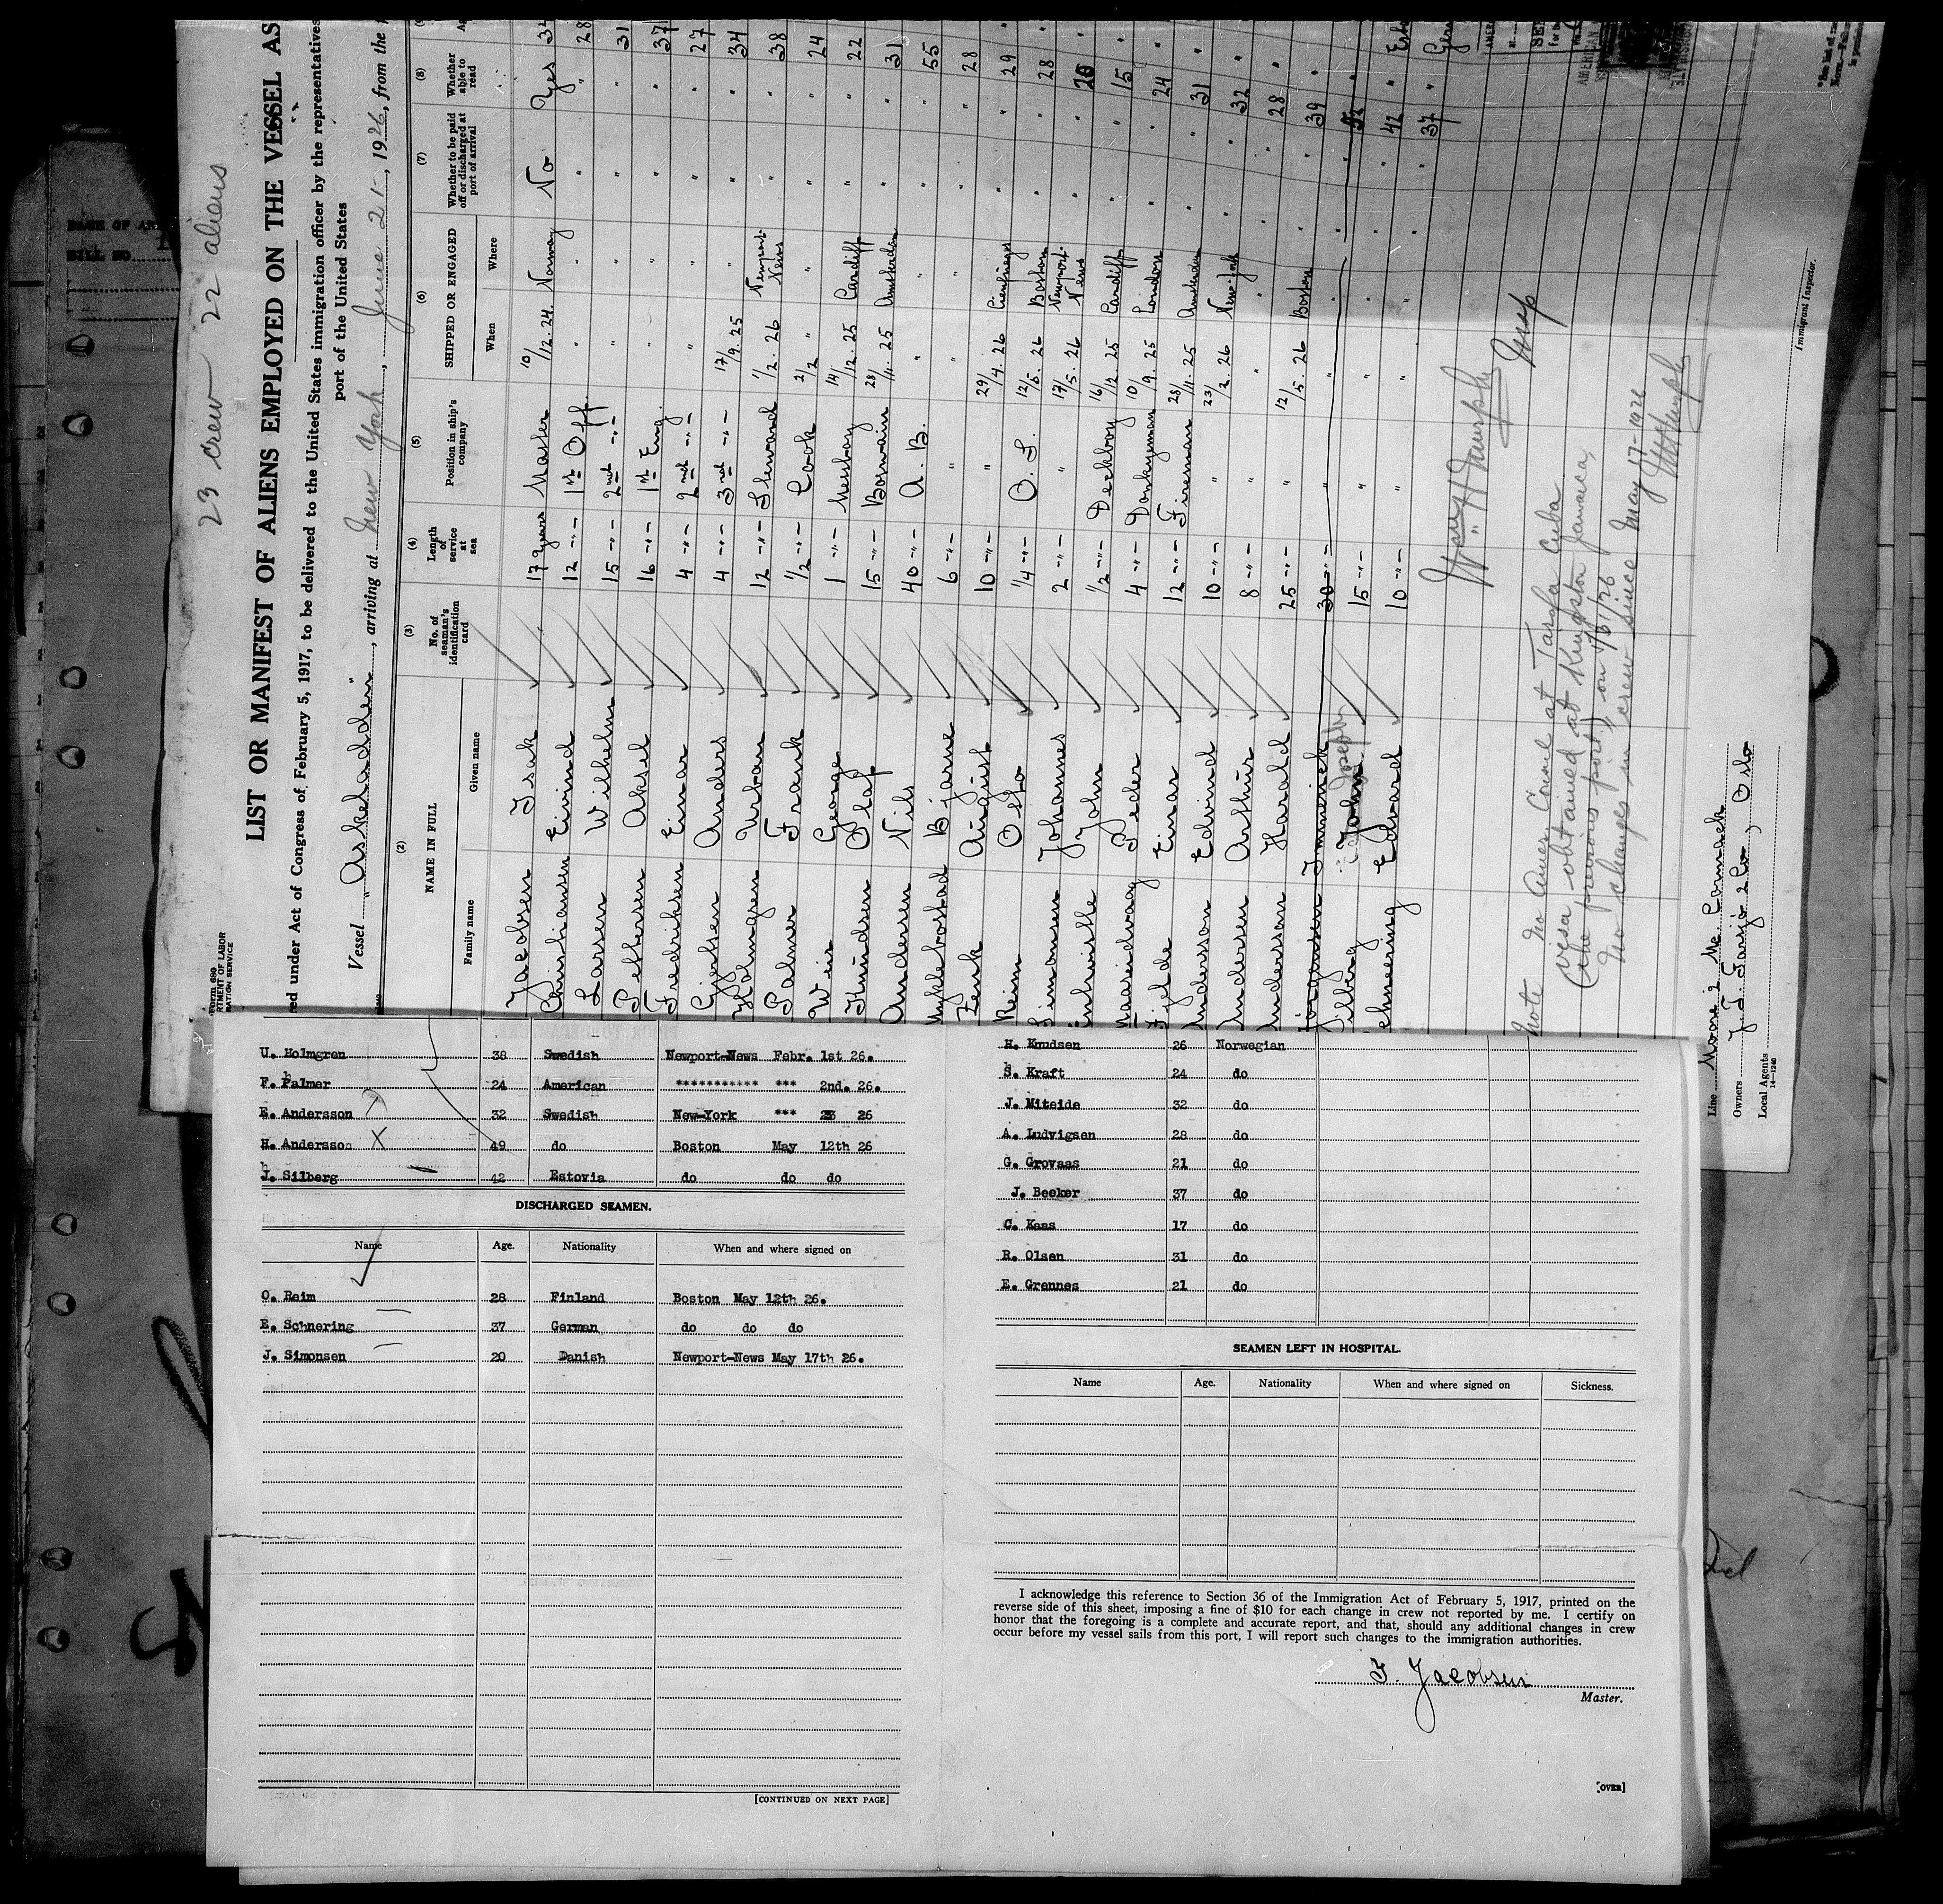 23 crew 22 aliens
LIST OR MANIFEST OF ALIENS EMPLOYED ON THE VESSEL AS
ed under Act of Congress of February 5, 1917, to be delivered to the United States immigration officer by the representatives
port of the United States
Vessel "Askeladden", arriving at New York, June 21, 1926, from the
(2) (3) (4) (5) (6) (7) (8)
NAME IN FULL
Family name Given name
No. of seaman's identification card
Length of service at sea
Position in ship's company
SHIPPED OR ENGAGED
When Where
Whether to be paid off or discharged at port of arrival
Whether able to read
Jacobsen Isak 17 years Master 10/12.24. Norway No Yes 32
Christiansen Eivind 12 -"- 1st Off. " " " " 28
Larsen Wilhelm 15 -"- 2nd -"- " " " " 31
Pettersen Aksel 16 -"- 1st Eng. " " " " 37
Fredriksen Einar 4 -"- 2nd -"- " " " " 27
Gjertsen Anders 4 -"- 3rd -"- 17/9.25 " " " 34
Holmgren Urban 12 -"- Steward 1/2.26 Newport News " " 38
Palmer Frank 1/2 -"- Cook 2/2 " " " " 24
Weir George 1 -"- Messboy 14/12.25 Cardiff " " 22
Knudsen Olaf 15 -"- Boswain 28/11.25 Amsterdam " " 31
Andersen Nils 40 -"- A.B. " " " " 55
Myklebostad Bjarne 6 -"- " " " " " 28
Fenk August 10 -"- " 29/4.26 " " 29
Reim Otto 1/4 -"- O.S. 12/5.26 Boston " " 28
Simonsen Johannes 2 -"- " 17/5.26 Newport News " " 20
John 1/2 -"- Deckboy 16/12.25 Cardiff " " 15
Peder 4 -"- Donkeyman 10/9.25 London " " 24
Einar 12 -"- Fireman 28/11.25 Amsterdam " " 31
Andersson Edvind 10 -"- " 23/2.26 New-York " " 32
Andersen Arthur 8 -"- " " " " 28
Andersson Harald 25 -"- " 12/5.26 Boston " " 39
Jörgensen Immerick 30 -"- " " " " " 52
Silberg John Joseph 15 -"- " " " " " 42
Schnering Edvard 10 -"- " " " " " 37
Note No Amer. Consul at Tarafa Cuba
visa obtained at Kingston Jamaica,
(the previous port) on 6/1/26
No changes in crew since May 17-1926
Line Moore & Mc. Cormack
Owners Oslo
Local Agents
14-1240
Immigrant Inspector.
U. Holmgren 38 Swedish Newport-News Febr. 1st 26.
F. Palmer 24 American *********** *** 2nd. 26.
E. Andersson 32 Swedish New-York *** 23 26
H. Andersson X 49 do Boston May 12th 26
J. Silberg 42 Estovia do do do
DISCHARGED SEAMEN.
Name Age. Nationality When and where signed on
O. Reim 28 Finland Boston May 12th 26.
E. Schnering 37 German do do do
J. Simonsen 20 Danish Newport-News May 17th 26.
[CONTINUED ON NEXT PAGE]
H. Knudsen 26 Norwegian
S. Kraft 24 do
J. Miteide 32 do
A. Ludvigsen 28 do
G. Grovaas 21 do
J. Beeker 37 do
C. Kaas 17 do
R. Olsen 31 do
E. Grennes 21 do
SEAMEN LEFT IN HOSPITAL.
Name Age. Nationality When and where signed on Sickness.
I acknowledge this reference to Section 36 of the Immigration Act of February 5, 1917, printed on the
reverse side of this sheet, imposing a fine of $10 for each change in crew not reported by me. I certify on
honor that the foregoing is a complete and accurate report, and that, should any additional changes in crew
occur before my vessel sails from this port, I will report such changes to the immigration authorities.
I. Jacobsen
Master.
[OVER]